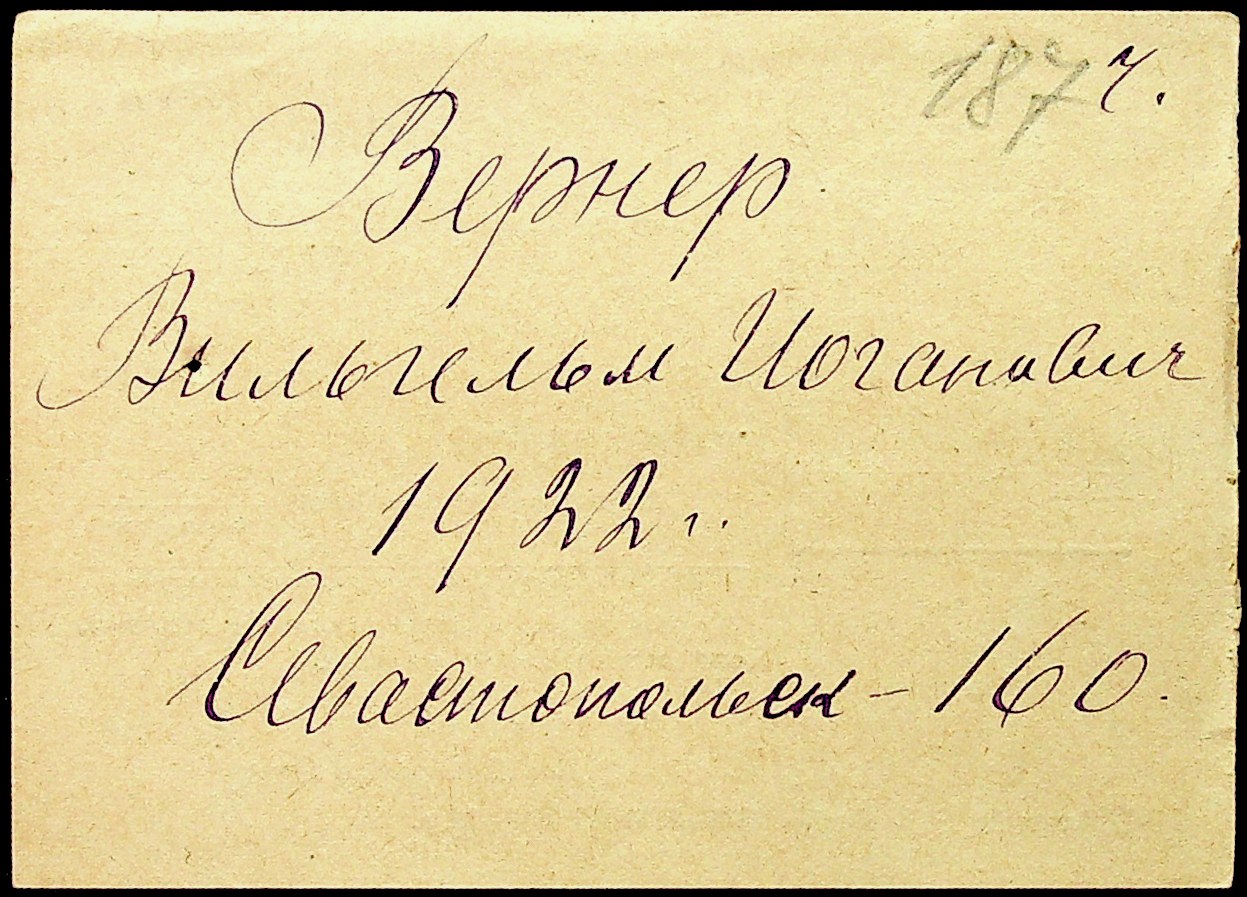 187 ч.
Вернер
Вильгельм Иоганович
1922 г.
Севастопольск - 160.